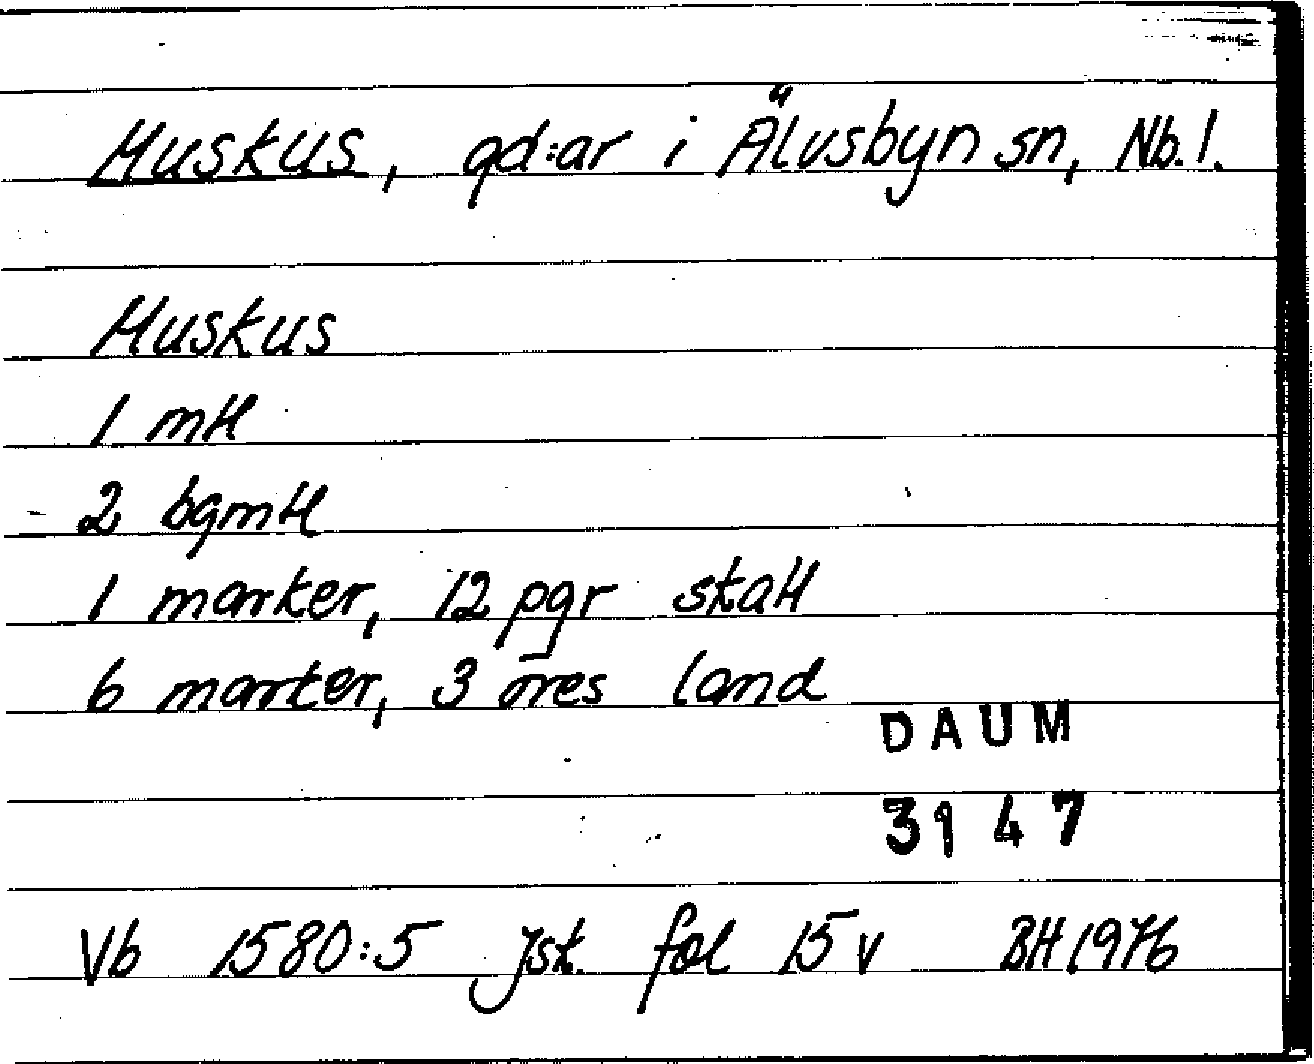 Muskus, gd:ar i Älvsbyn sn, Nb.l.
Muskus
1 mtl
2 bgmtl
1 marker, 12 pgr skatt
6 marker, 3 öres land
DAUM
3147
Vb 1580:5 Jsk. fol 15 v BH 1976